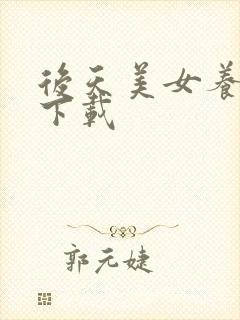 後天美女養
下載
郭元婕